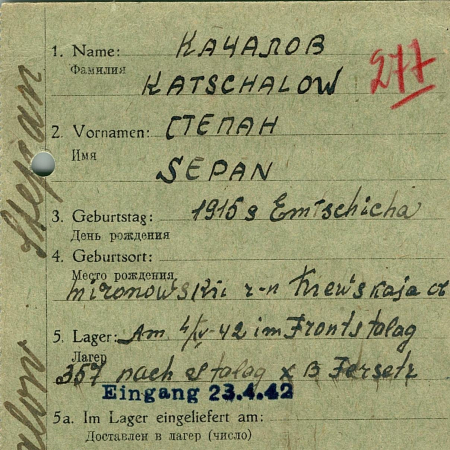 1. Name: КАЧАЛОВ
Фамилия
KATSCHALOW
277
2. Vornamen: СТЕПАН
Имя
SEPAN
3. Geburtstag: 1915 g Emtschicha
День рождения
4. Geburtsort:
Место рождения
mironowskii r-n Kiewskaja
5. Lager: Am 4/IV-42 im Frontstalag
Лагер
357 nach Stalag X B Fersetz
Eingang 23.4.42
5a. Im Lager eingeliefert am:
Доставлен в лагер (число)
Stepan
alow